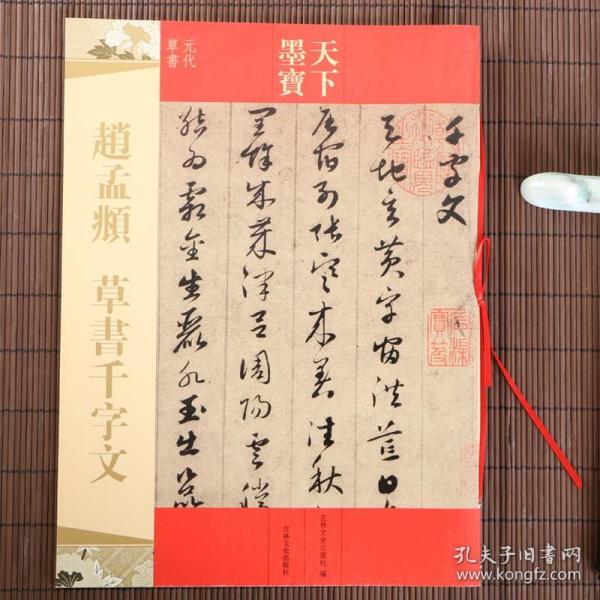 元代
草書
天下
墨寶
趙孟頫 草書千字文
千字文
天地玄黃宇宙洪荒日
辰宿列張寒來暑往秋
閏餘成歲律呂調陽雲騰
結為霜金生麗水玉出
吉林文史出版社 編
吉林文史出版社
孔夫子旧書网
www.kongfz.com